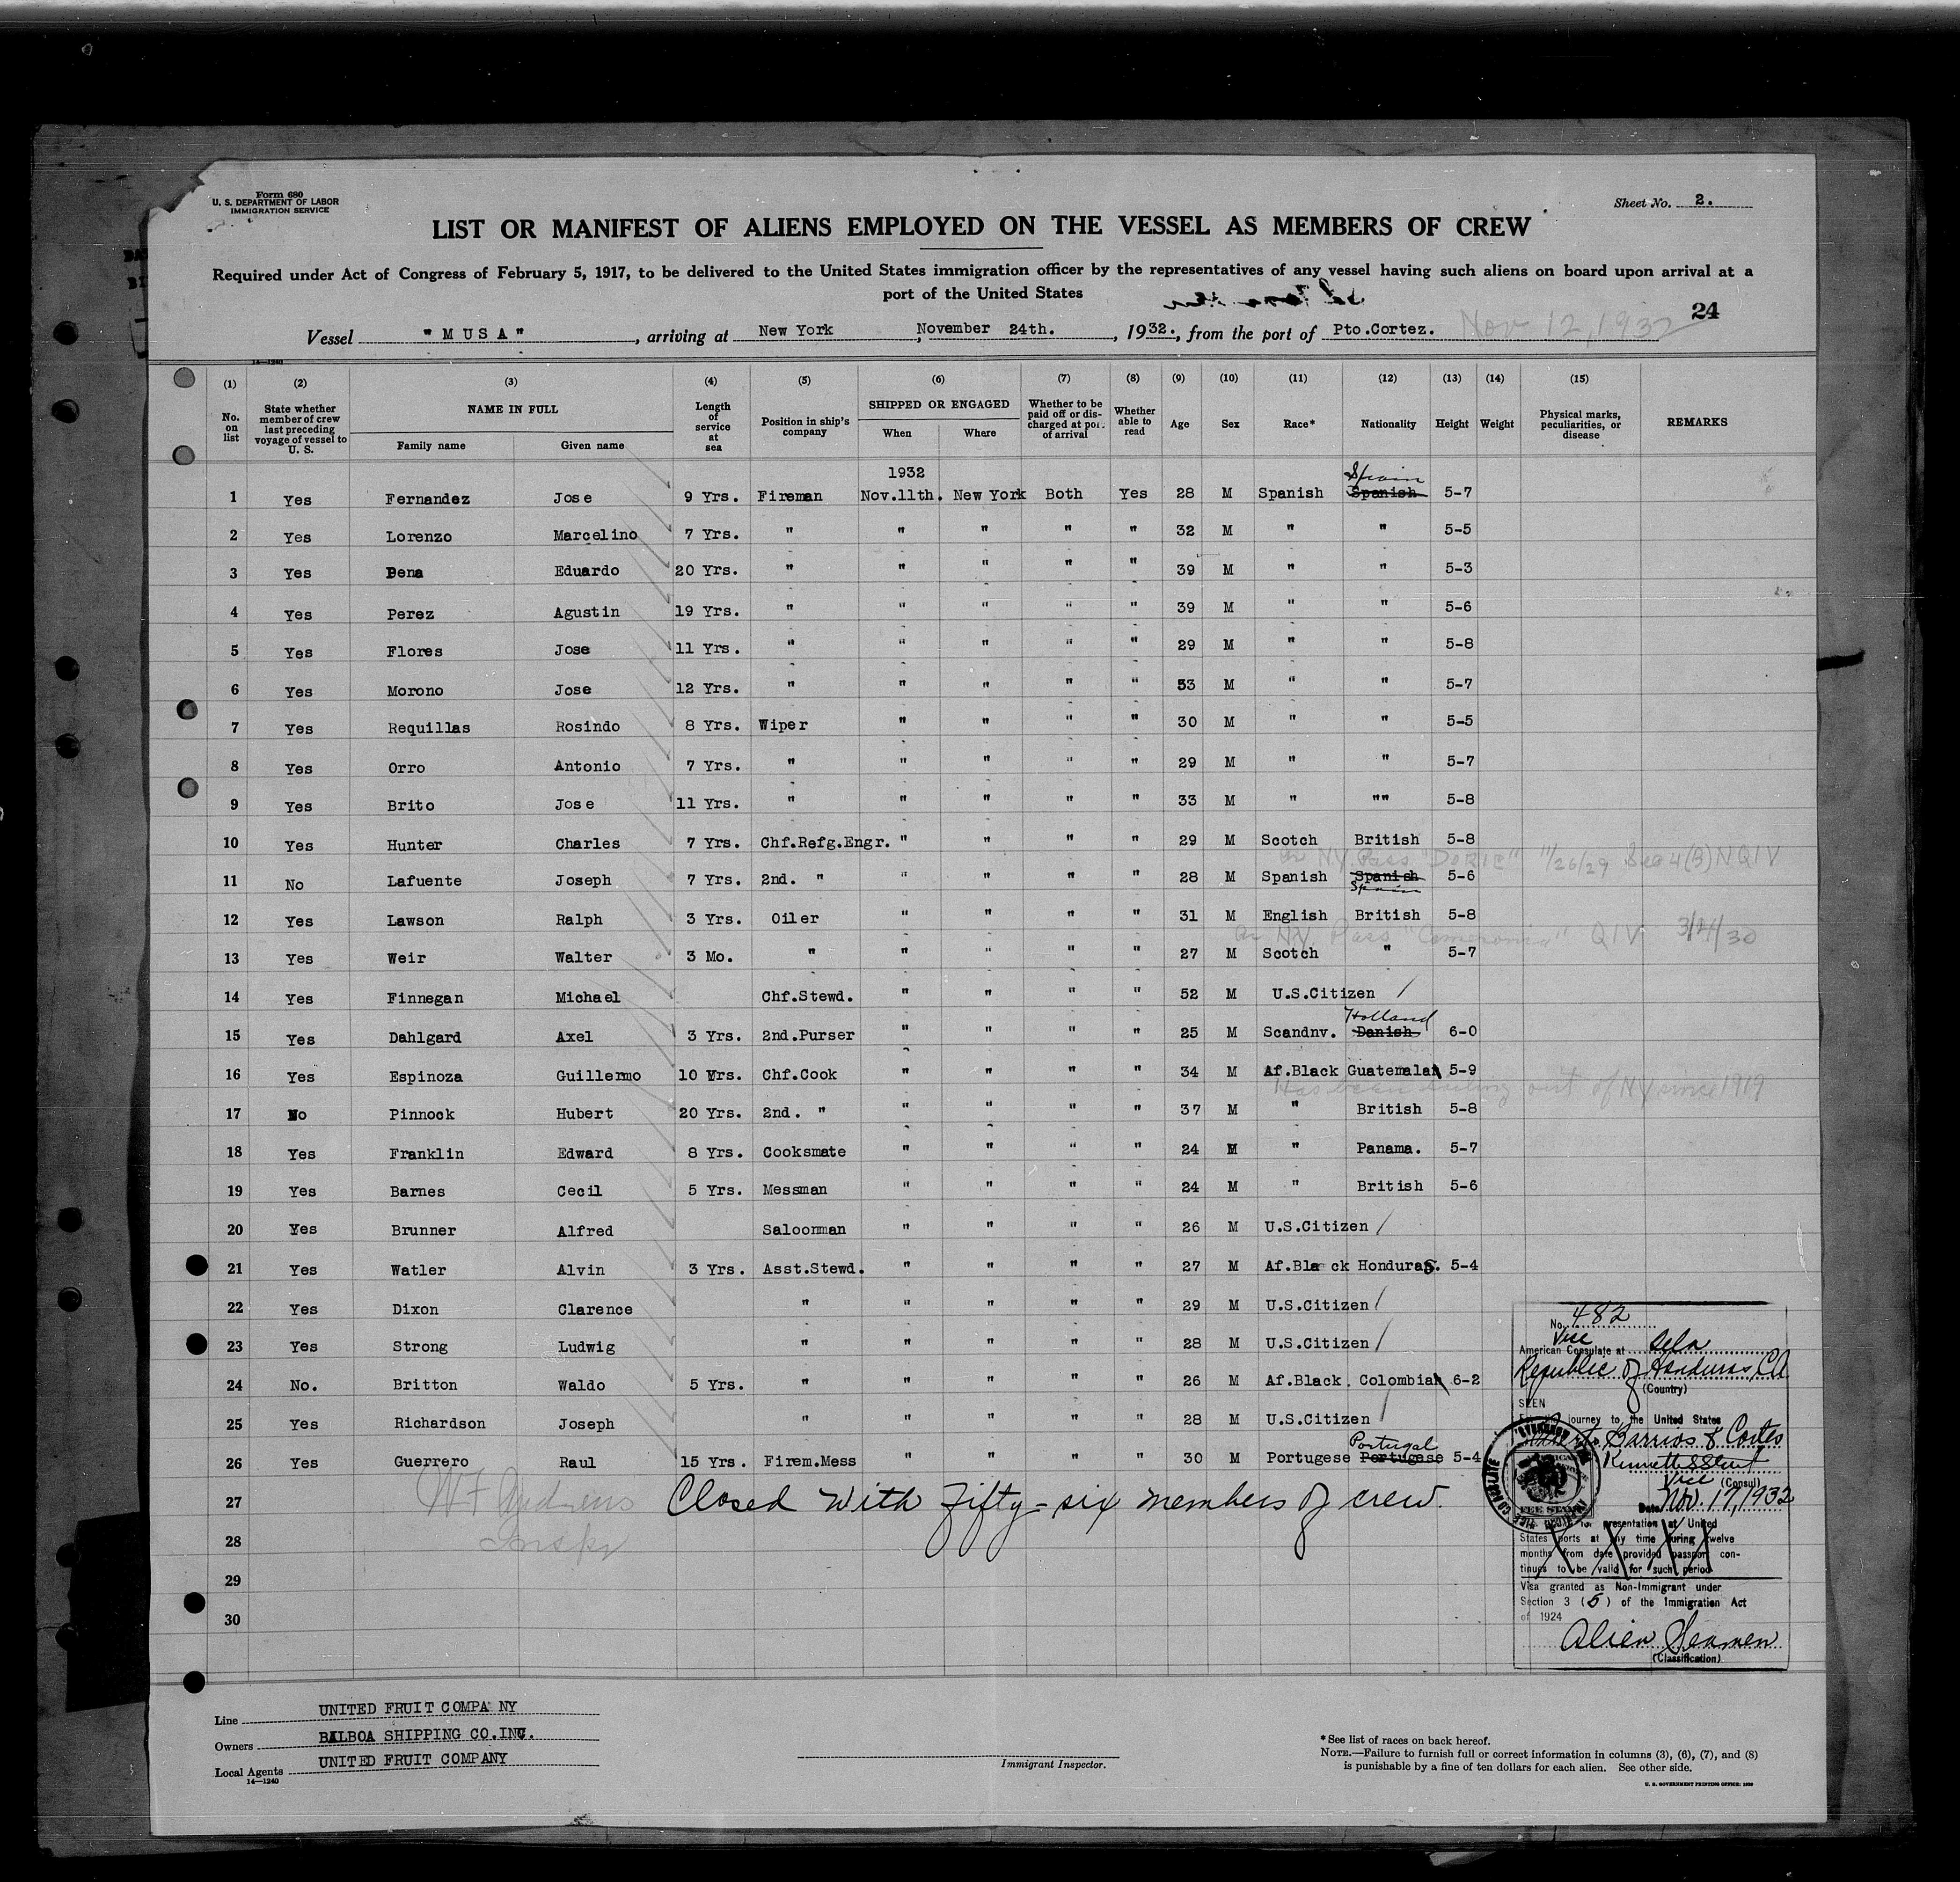 Form 680
U. S. DEPARTMENT OF LABOR
IMMIGRATION SERVICE
Sheet No. 2.
LIST OR MANIFEST OF ALIENS EMPLOYED ON THE VESSEL AS MEMBERS OF CREW
Required under Act of Congress of February 5, 1917, to be delivered to the United States immigration officer by the representatives of any vessel having such aliens on board upon arrival at a
port of the United States
24
Vessel "MUSA", arriving at New York, November 24th., 1932., from the port of Pto.Cortez. Nov 12, 1932
14—1240
(1) (2) (3) (4) (5) (6) (7) (8) (9) (10) (11) (12) (13) (14) (15)
No. on list State whether member of crew last preceding voyage of vessel to U. S. NAME IN FULL Family name Given name Length of service at sea Position in ship's company SHIPPED OR ENGAGED When Where Whether to be paid off or discharged at port of arrival Whether able to read Age Sex Race* Nationality Height Weight Physical marks, peculiarities, or disease REMARKS
1932 Spain
1 Yes Fernandez Jose 9 Yrs. Fireman Nov.11th. New York Both Yes 28 M Spanish Spanish 5-7
2 Yes Lorenzo Marcelino 7 Yrs. " " " " " 32 M " " 5-5
3 Yes Pena Eduardo 20 Yrs. " " " " " 39 M " " 5-3
4 Yes Perez Agustin 19 Yrs. " " " " " 39 M " " 5-6
5 Yes Flores Jose 11 Yrs. " " " " " 29 M " " 5-8
6 Yes Morono Jose 12 Yrs. " " " " " 53 M " " 5-7
7 Yes Requillas Rosindo 8 Yrs. Wiper " " " " 30 M " " 5-5
8 Yes Orro Antonio 7 Yrs. " " " " " 29 M " " 5-7
9 Yes Brito Jose 11 Yrs. " " " " " 33 M " "" 5-8
10 Yes Hunter Charles 7 Yrs. Chf.Refg.Engr. " " " " 29 M Scotch British 5-8
Ar NY. Pass "DORIC" 11/26/29 Sec 4(B) NQIV
11 No Lafuente Joseph 7 Yrs. 2nd. " " " " " 28 M Spanish Spanish 5-6
Spain
12 Yes Lawson Ralph 3 Yrs. Oiler " " " " 31 M English British 5-8
Ar NY. Pass "Cameronia" QIV
13 Yes Weir Walter 3 Mo. " " " " " 27 M Scotch " 5-7
14 Yes Finnegan Michael Chf.Stewd. " " " " 52 M U.S.Citizen /
Holland
15 Yes Dahlgard Axel 3 Yrs. 2nd.Purser " " " " 25 M Scandnv. Danish 6-0
16 Yes Espinoza Guillermo 10 Yrs. Chf.Cook " " " " 34 M Af.Black Guatemalan 5-9
Has been sailing out of NY since 1919
17 No Pinnock Hubert 20 Yrs. 2nd. " " " " " 37 M " British 5-8
18 Yes Franklin Edward 8 Yrs. Cooksmate " " " " 24 M " Panama. 5-7
19 Yes Barnes Cecil 5 Yrs. Messman " " " " 24 M " British 5-6
20 Yes Brunner Alfred Saloonman " " " " 26 M U.S.Citizen /
21 Yes Watler Alvin 3 Yrs. Asst.Stewd. " " " " 27 M Af.Bla ck Honduras. 5-4
22 Yes Dixon Clarence " " " " " 29 M U.S.Citizen /
23 Yes Strong Ludwig " " " " " 28 M U.S.Citizen /
24 No. Britton Waldo 5 Yrs. " " " " " 26 M Af.Black. Colombian 6-2
25 Yes Richardson Joseph " " " " " 28 M U.S.Citizen /
Portugal
26 Yes Guerrero Raul 15 Yrs. Firem.Mess " " " " 30 M Portugese Portugese 5-4
27 W F Andrews Closed with Fifty-six members of crew.
28 Inspr
29
30
No. 482
Vice
American Consulate at Tela
Republic of Honduras, CA
(Country)
SEEN
For the journey to the United States
Barrios & Cortes
Vice (Consul)
Date Nov. 17, 1932
FEE STAMP
for presentation at United
States ports at any time during twelve
months from date provided passport con-
tinues to be valid for such period
Visa granted as Non-Immigrant under
Section 3 (5) of the Immigration Act
of 1924
Alien Seamen
(Classification)
Line UNITED FRUIT COMPANY
Owners BALBOA SHIPPING CO.INC.
Local Agents UNITED FRUIT COMPANY
14—1240
Immigrant Inspector.
*See list of races on back hereof.
NOTE.—Failure to furnish full or correct information in columns (3), (6), (7), and (8)
is punishable by a fine of ten dollars for each alien. See other side.
U. S. GOVERNMENT PRINTING OFFICE: 1930